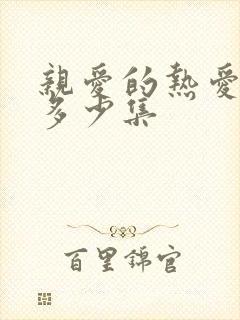 親愛的熱愛
多少集
百里錦官